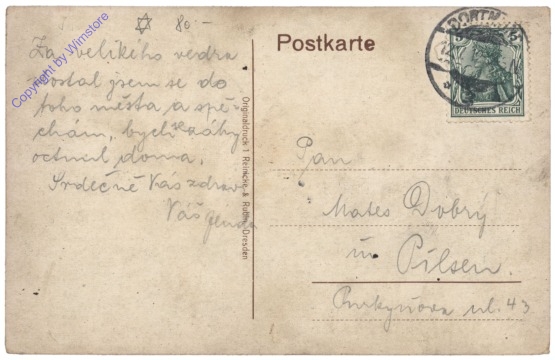 80.-
Copyright by Wimstore
Za velikého vedra
dostal jsem se do
toho města a spě-
chám, bych se záhy
octnul doma.
Srdečně Vás zdraví
Váš
Postkarte
DORTMUND
5 5
DEUTSCHES REICH
Originaldruck 1 Reinicke & Rubin, Dresden
Pan
Mates Dobrý
in Pilsen.
Purkyňova ul. 43